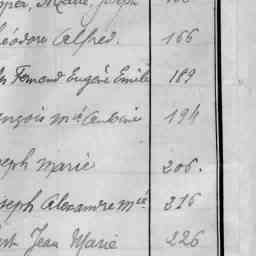 Marie Joseph
éodore Alfred. 166
Fernand Eugène Emile 189
ançois Mie Antoine 194
seph Marie 206.
seph Alexandre Mie 216
Jean Marie 226